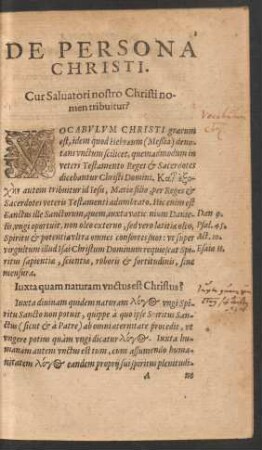 DE PERSONA
CHRISTI.
Cur Saluatori nostro Christi no-
men tribuitur?
VOCABVLVM CHRISTI græcum
est, idem quod Hebræum (Messia) deno-
tans vnctum scilicet, quemadmodum in
veteri Testamento Reges & Sacerdotes
dicebantur Christi Domini. Κατ' ἐξο-
χὴν autem tribuitur id Iesu, Mariæ filio, per Reges &
Sacerdotes veteris Testamenti adumbrato. Hic enim est
Sanctus ille Sanctorum, quem, iuxta vaticinium Danie-
lis, vngi oportuit, non oleo externo, sed vero lætitiæ oleo,
Spiritu & potentia vltra omnes consortes suos: vt super
virgultum illud Isai Christum Dominum requiescat spi-
ritus sapientiæ, scientiæ, roboris & fortitudinis, sine
mensura.
Dan 9.
Psal. 45.
Act. 10.
Esaiæ 11.
Iuxta quam naturam vnctus est Christus?
Iuxta diuinam quidem naturam λόγος vngi Spi-
ritu Sancto non potuit, quippe à quo ipse Spiritus San-
ctus (sicut & à Patre) ab omni æternitate procedit, vt
vngere potius quàm vngi dicatur λόγος. Iuxta hu-
manam autem vnctus est tum, cum assumendo huma-
nitatem λόγος eandem proprij sui spiritus plenitudi-
A ne